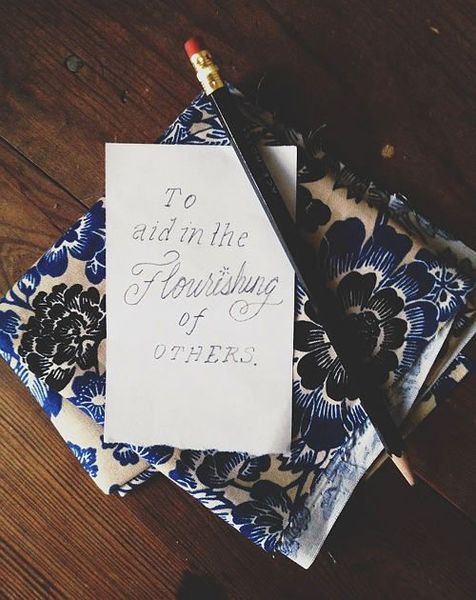 To
aid in the
Flourishing
of
OTHERS.